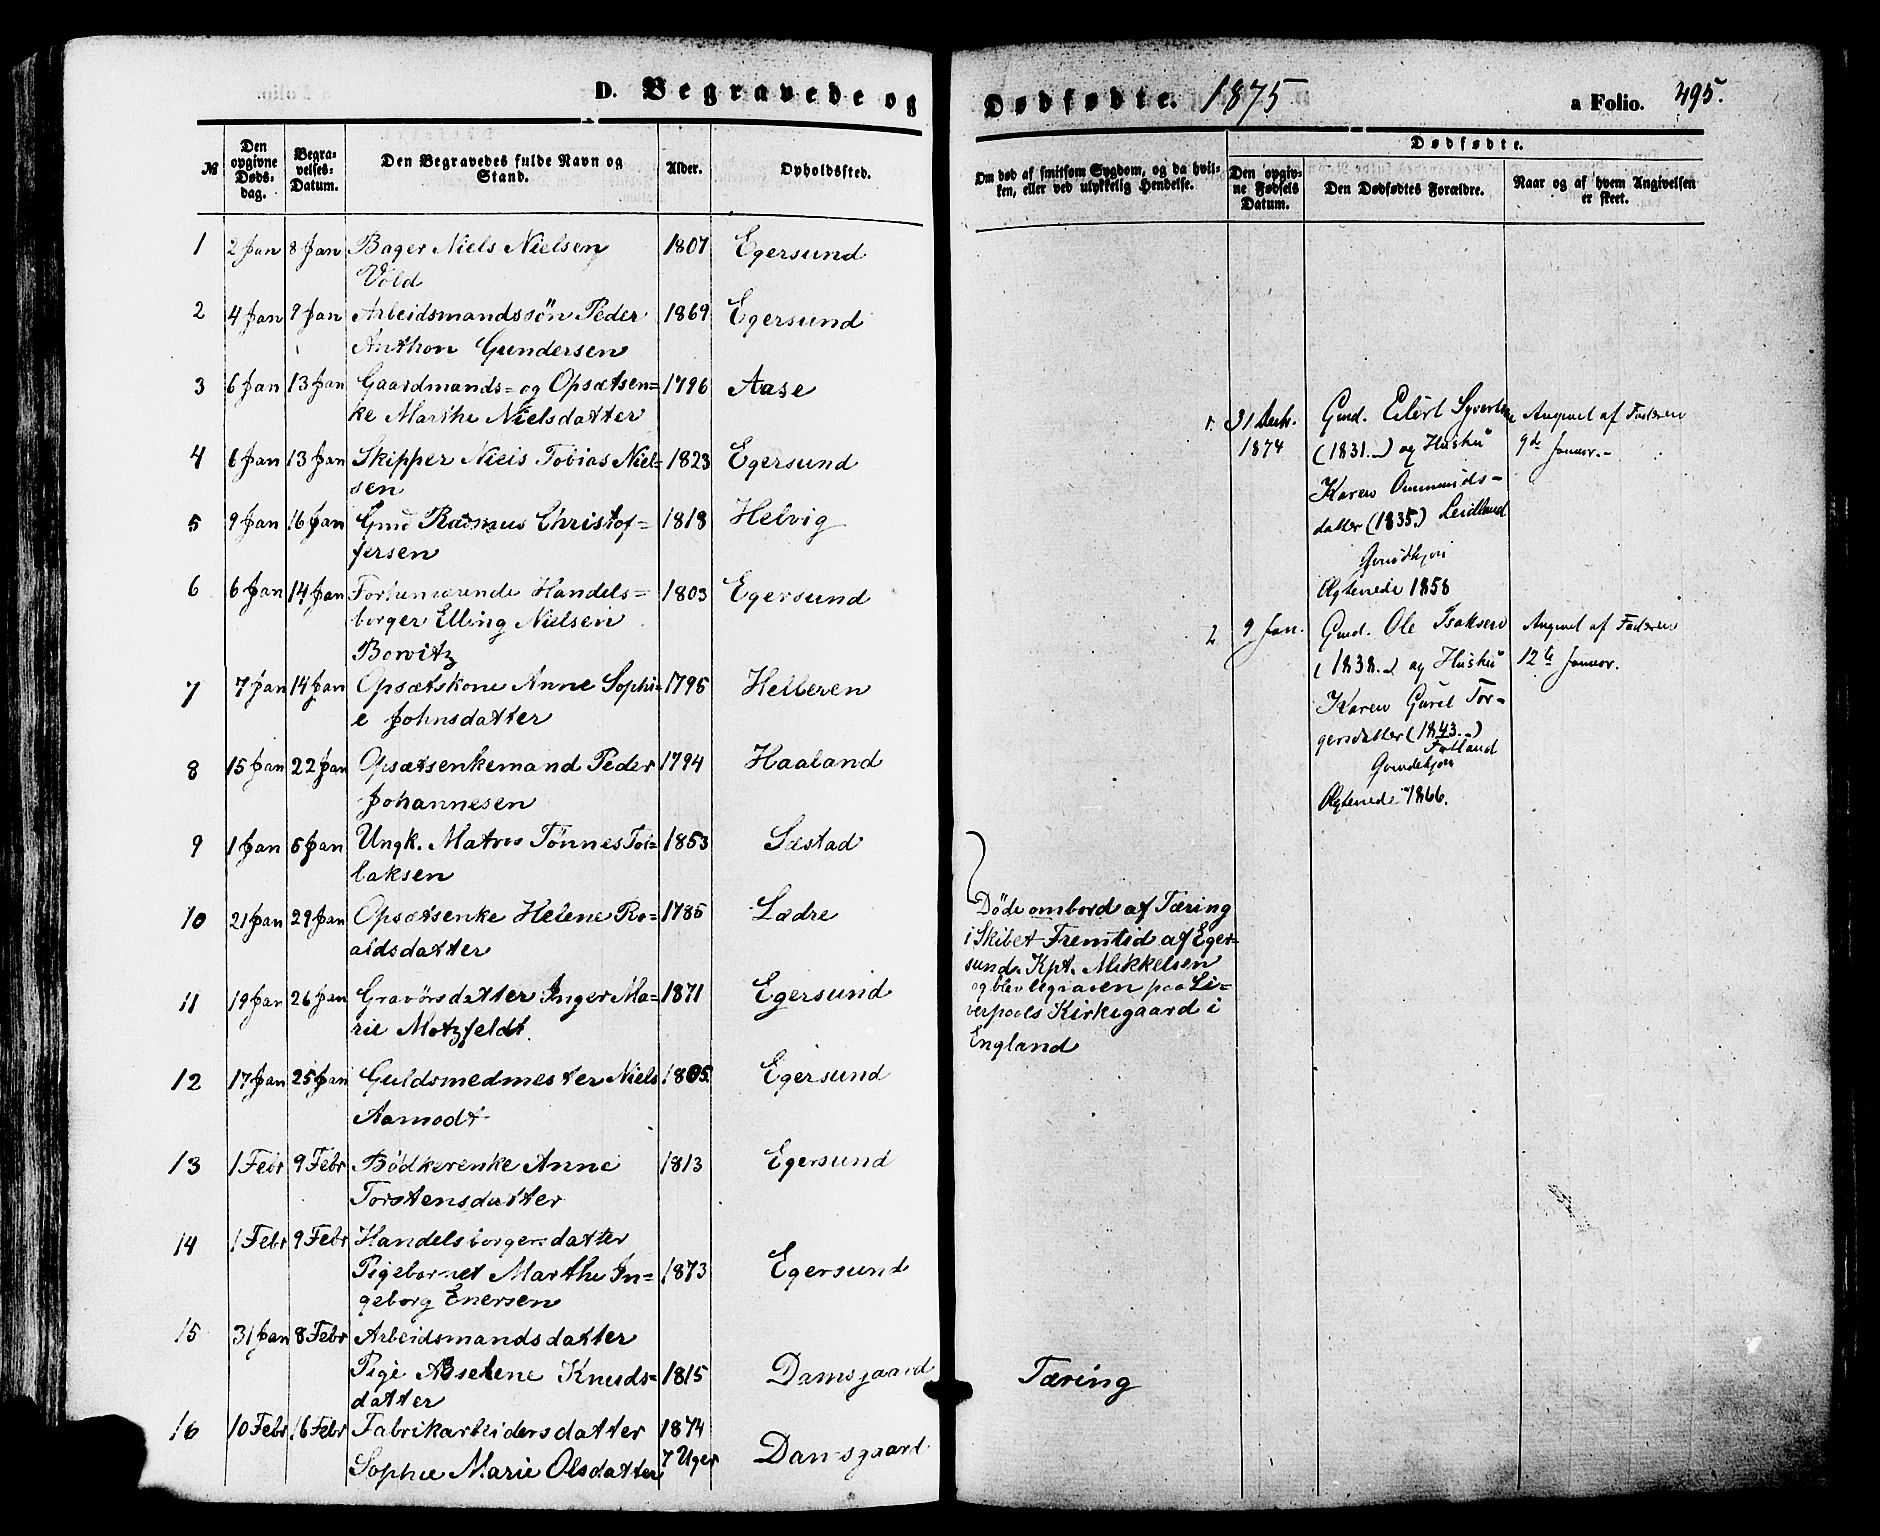 D. Begravede og
№
Den opgivne Døds-dag.
Begra-velses-Datum.
Den Begravedes fulde Navn og Stand.
Alder.
Opholdssted.
1 2 Jan 8 Jan Bager Niels Nielsen 1807 Egersund
Vold
2 4 Jan 8 Jan Arbeidsmandssön Peder 1869 Egersund
Anthon Gundersen
3 6 Jan 13 Jan Gaardmands= og Opsætsen= 1796 Aase
ke Marthe Nielsdatter
4 6 Jan 13 Jan Skipper Niels Tobias Niel= 1823 Egersund
sen
5 9 Jan 16 Jan Gmd Rasmus Christof= 1818 Helvig
fersen
6 6 Jan 14 Jan Forhenværende Handels= 1803 Egersund
borger Elling Nielsen
Bowitz
7 7 Jan 14 Jan Opsætskone Anne Sophi= 1795 Helleren
e Johnsdatter
8 15 Jan 22 Jan Opsætsenkemand Peder 1794 Haaland
Johannesen
9 1 Jan 5 Jan Ungk. Matros Tønnes Tol= 1853 Sæstad
laksen
10 21 Jan 29 Jan Opsætsenke Helene Ro= 1785 Lædre
aldsdatter
11 19 Jan 26 Jan Gravörsdatter Inger Ma= 1871 Egersund
rie Motzfeldt.
12 17 Jan 25 Jan Guldsmedmester Niels 1805 Egersund
Aamodt
13 1 Febr 9 Febr Bödkerenke Anne 1813 Egersund
Torstensdatter
14 1 Febr 9 Febr Handelsborgersdatter
Pigebarnet Marthe In= 1873 Egersund
geborg Enersen
15 31 Jan 8 Febr Arbeidsmandsdatter
Pige Aselene Knuds= 1815 Damsgaard
datter
16 10 Febr 16 Febr Fabrikarbeidersdatter 1874
Sophie Marie Olsdatter 7 Uger Damsgaard
Dødfødte. 1875
a Folio. 495.
Om død af smitsom Sygdom, og da hvil-
ken, eller ved ulykkelig Hendelse.
Dødfødte.
Den opgiv-ne Fødsels Datum.
Den Dødfødtes Forældre.
Naar og af hvem Angivelsen er skeet.
1. 31 Decb. Gmd. Eilert Syvertsen Angivet af Faderen
1874 (1831.) og Hustru 9de Januar.
Karen Ommunds-
datter (1835.) Leidland
Ægteviede 1858
2 9 Jan. Gmd. Ole Isaksen Angivet af Faderen
(1838.) og Hustru 12te Januar.
Karen Gurel Tor-
gersdatter (1843.)
Ægteviede 1866.
Døde ombord af Tæring
i Skibet Fremtid af Eger=
sund. Kpt. Mikkelsen
og blev begraven paa Li=
verpools Kirkegaard i
England
Tæring